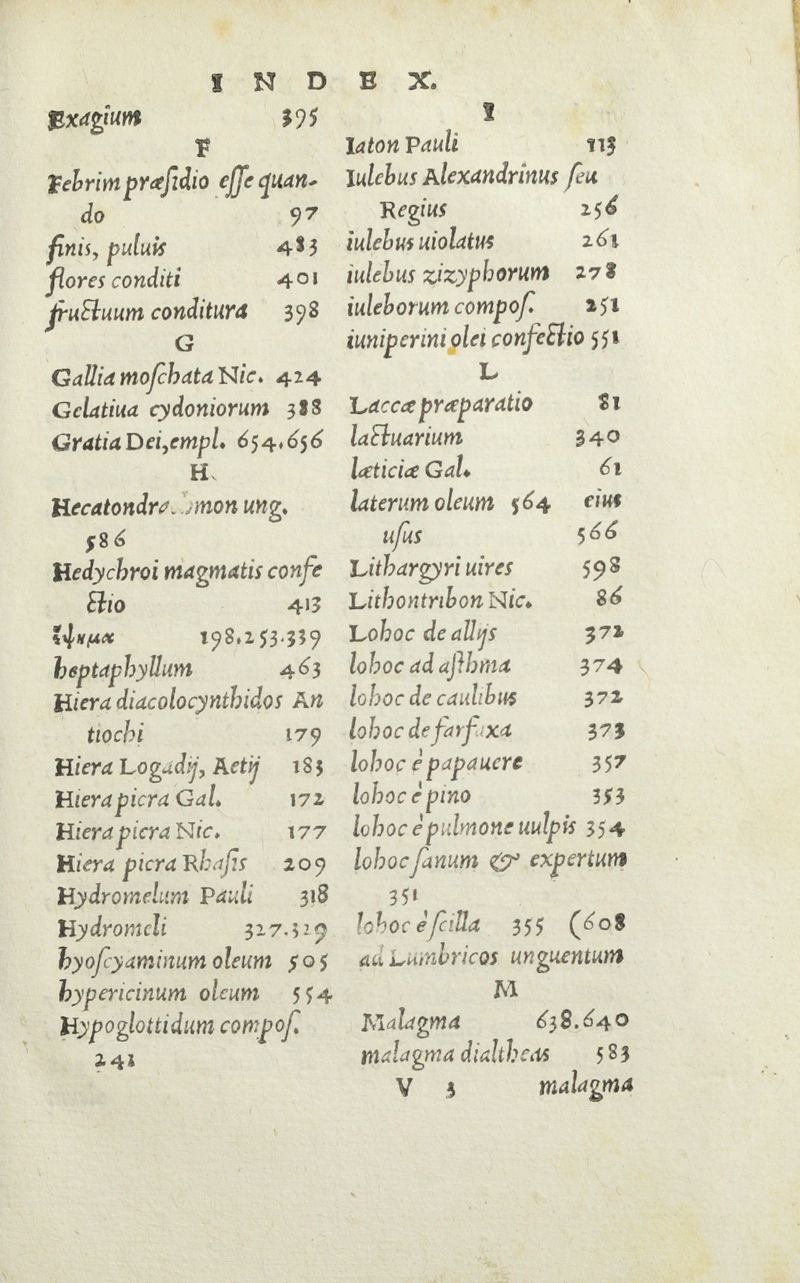 INDEX.
Exagium 395
F
Febrim præsidio esse quan-
do 97
finis, puluis 483
flores conditi 401
fructuum conditura 398
G
Gallia moschata Nic. 424
Gelatiua cydoniorum 388
Gratia Dei, empl. 654.656
H.
mon ung.
586
Hedychroi magmatis confe
ctio 413
ἕψημα 198.253.339
heptaphyllum 463
Hiera diacolocynthidos An
tiochi 179
Hiera Logadij, Aetij 183
Hiera picra Gal. 172
Hiera picra Nic. 177
Hiera picra Rhasis 209
Hydromelum Pauli 318
Hydromeli 327.329
hyoscyaminum oleum 505
hypericinum oleum 554
Hypoglottidum compos.
241
I
Iaton Pauli 113
Iulebus Alexandrinus seu
Regius 256
iulebus uiolatus 261
iulebus zizyphorum 278
iuleborum compos. 251
iuniperini olei confectio 551
L
Laccæ præparatio 81
lactuarium 340
læticiæ Gal. 61
laterum oleum 564 eius
usus 566
Lithargyri uires 598
Lithontribon Nic. 86
Lohoc de allijs 372
lohoc ad asthma 374
lohoc de caulibus 372
lohoc de farfaxa 373
lohoc è papauere 357
lohoc è pino 353
lohoc è pulmone uulpis 354
lohoc sanum & expertum
351
lohoc è scilla 355 (608
ad Lumbricos unguentum
M
Malagma 638.640
malagma dialtheas 583
V 3 malagma